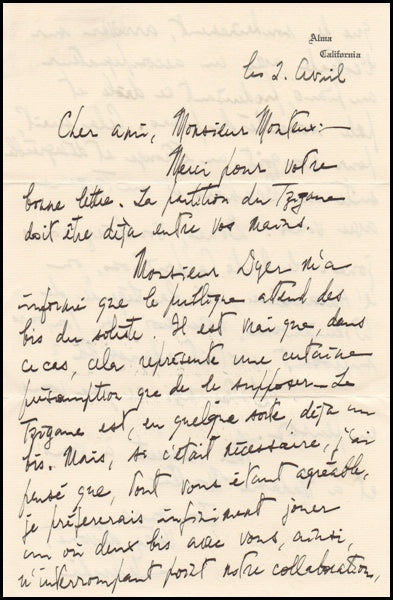 Alma
California
les 2. Avril
Cher ami, Monsieur Monteux:—
Merci pour votre
bonne lettre. La partition du Tzigane
doit être déja entre vos mains.
Monsieur Dyer m'a
informé que le publique attend des
bis du soliste. Il est vrai que, dans
ce cas, cela représente une certaine
présomption que de le supposer — Le
Tzigane est, en quelque sorte, déja un
bis. Mais, si c'était nécessaire, j'ai
pensé que, tout vous étant agréable,
je préfererais infiniment jouer
un où deux bis avec vous, ainsi,
n'interrompant point notre collaboration,